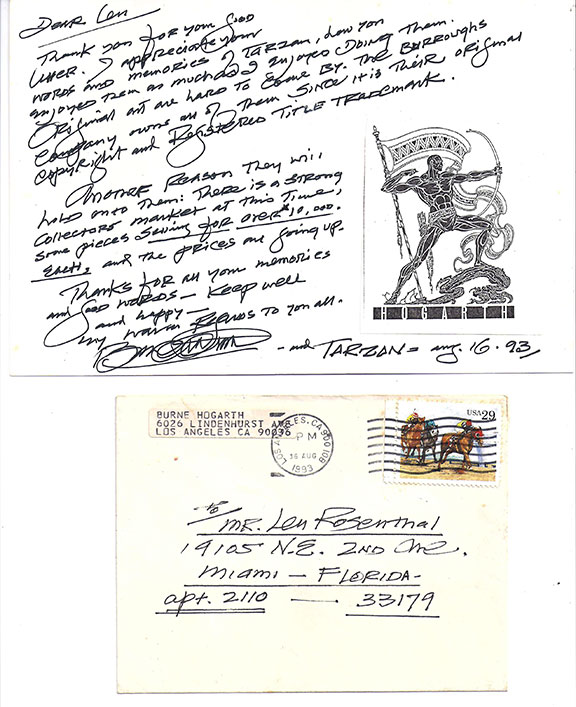 Dear Len
Thank you for your good
letter. I appreciate your
words and memories of TARZAN, how you
enjoyed them as much as I enjoyed DOING Them.
Original art are hard to come by. The Burroughs
Company owns all of them since it is Their original
copyright and Registered Title Trademark.
Another Reason They will
hold onto them: There is a strong
collectors market at this Time,
some pieces selling for over $10,000.
Each, and the prices are going up.
Thanks for all your memories
and good words — Keep well
and happy —
my warm regards to you all.
Burne Hogarth
- and TARZAN = Aug. 16. 93
HOGARTH
BURNE HOGARTH
6026 LINDENHURST AVE
LOS ANGELES CA 90036
LOS ANGELES, CA 900 108
PM
16 AUG
1993
USA 29
To
MR. Len Rosenthal
19105 N.E. 2ND Ave.
Miami — FLORIDA -
apt. 2110 — 33179